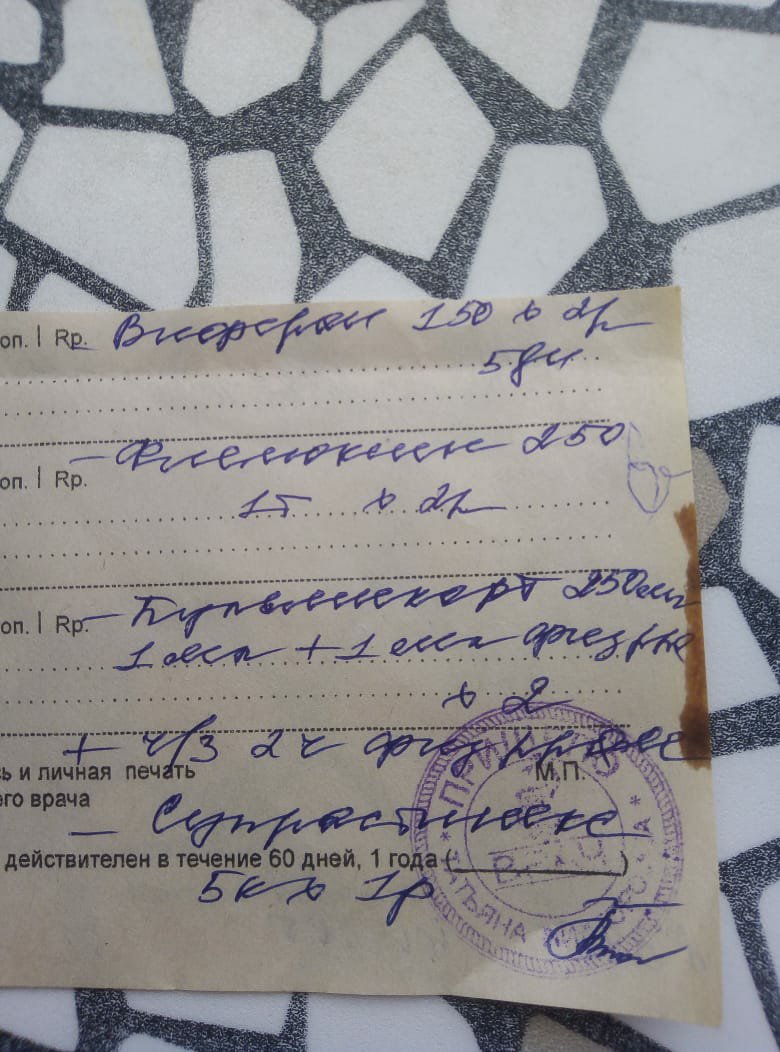 оп. | Rp. Виферон 150 х 2р
5дн
оп. | Rp. – Флемоксин 250
1т х 2р
оп. | Rp. – Пульмикорт 250мг
1 мл + 1 мл физ рра
х 2
+ ч/з 2ч физ
ь и личная печать М.П.
его врача
– Супрастинекс
действителен в течение 60 дней, 1 года (________)
5к х 1р
ВРАЧ